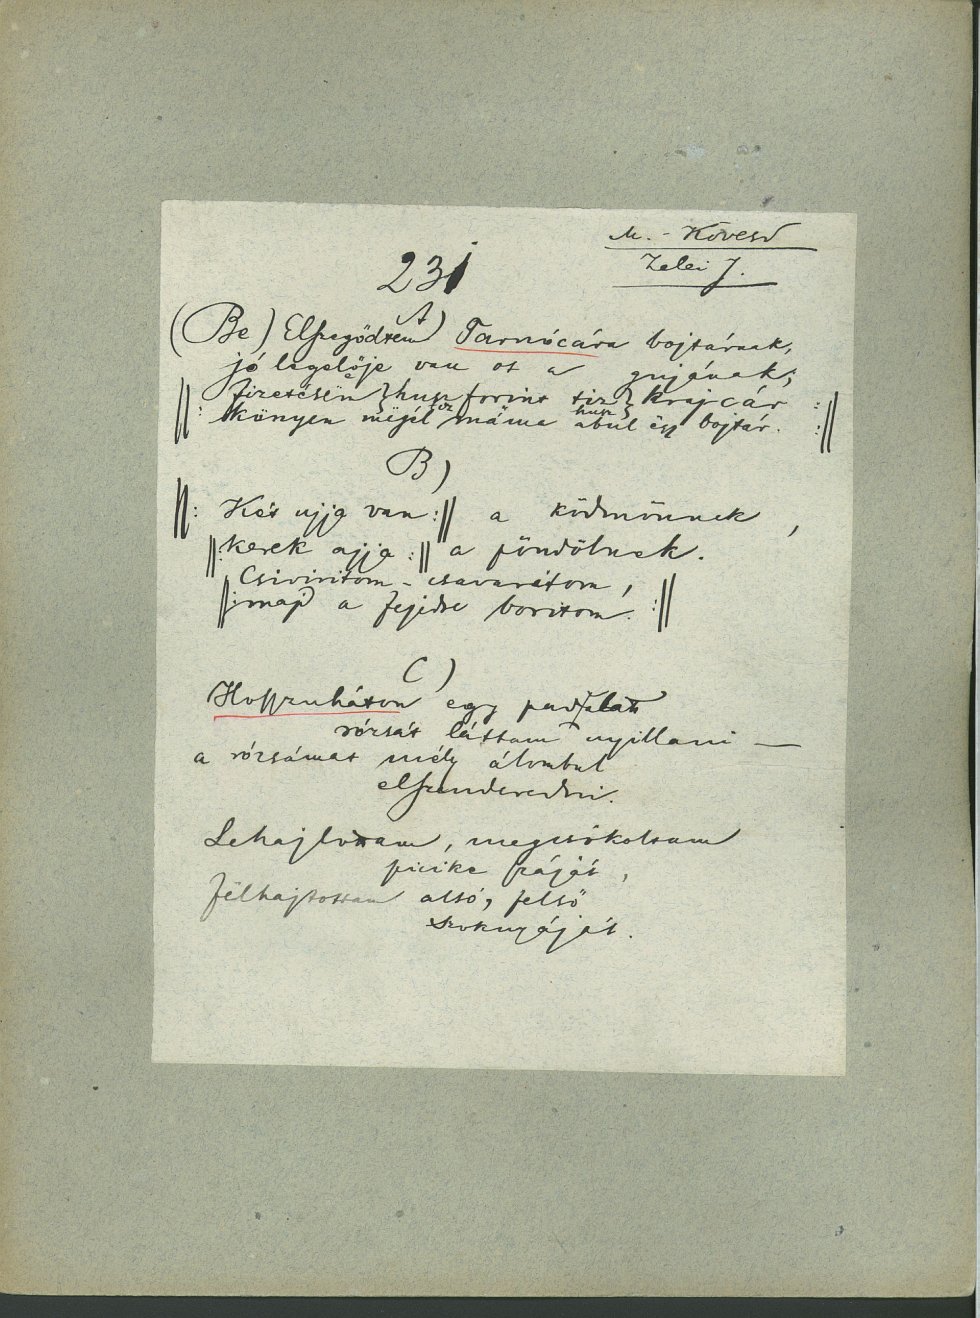 M. - Kövesd
Zelei J.
231
A)
(Be) Elszegődtem Tarnócára bojtárnak,
jó legelője van ot a gujának;
||: fizetésën } husz forint tiz } krajcár :||
könyen mëgél tiz máma husz abul ëgy bojtár.
B)
||: Két ujja van :|| a ködmönnek,
||: kerek ajja :|| a pöndölnek.
Csiviritom - csavarítom,
||: majd a fejidre boritom. :||
C)
Hosszuháton egy padfalatt
rózsát láttam nyillani —
a rózsámat mély álombul
elszenderedni.
Lehajlottam, megcsókoltam
picike száját,
félhajtottam alsó, felső
szoknyáját.